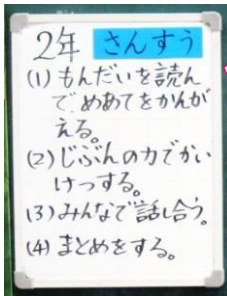 2年 さんすう
(1)もんだいを読ん
で、めあてをかんが
える。
(2)じぶんの力でかい
けつする。
(3)みんなで話し合う。
(4)まとめをする。